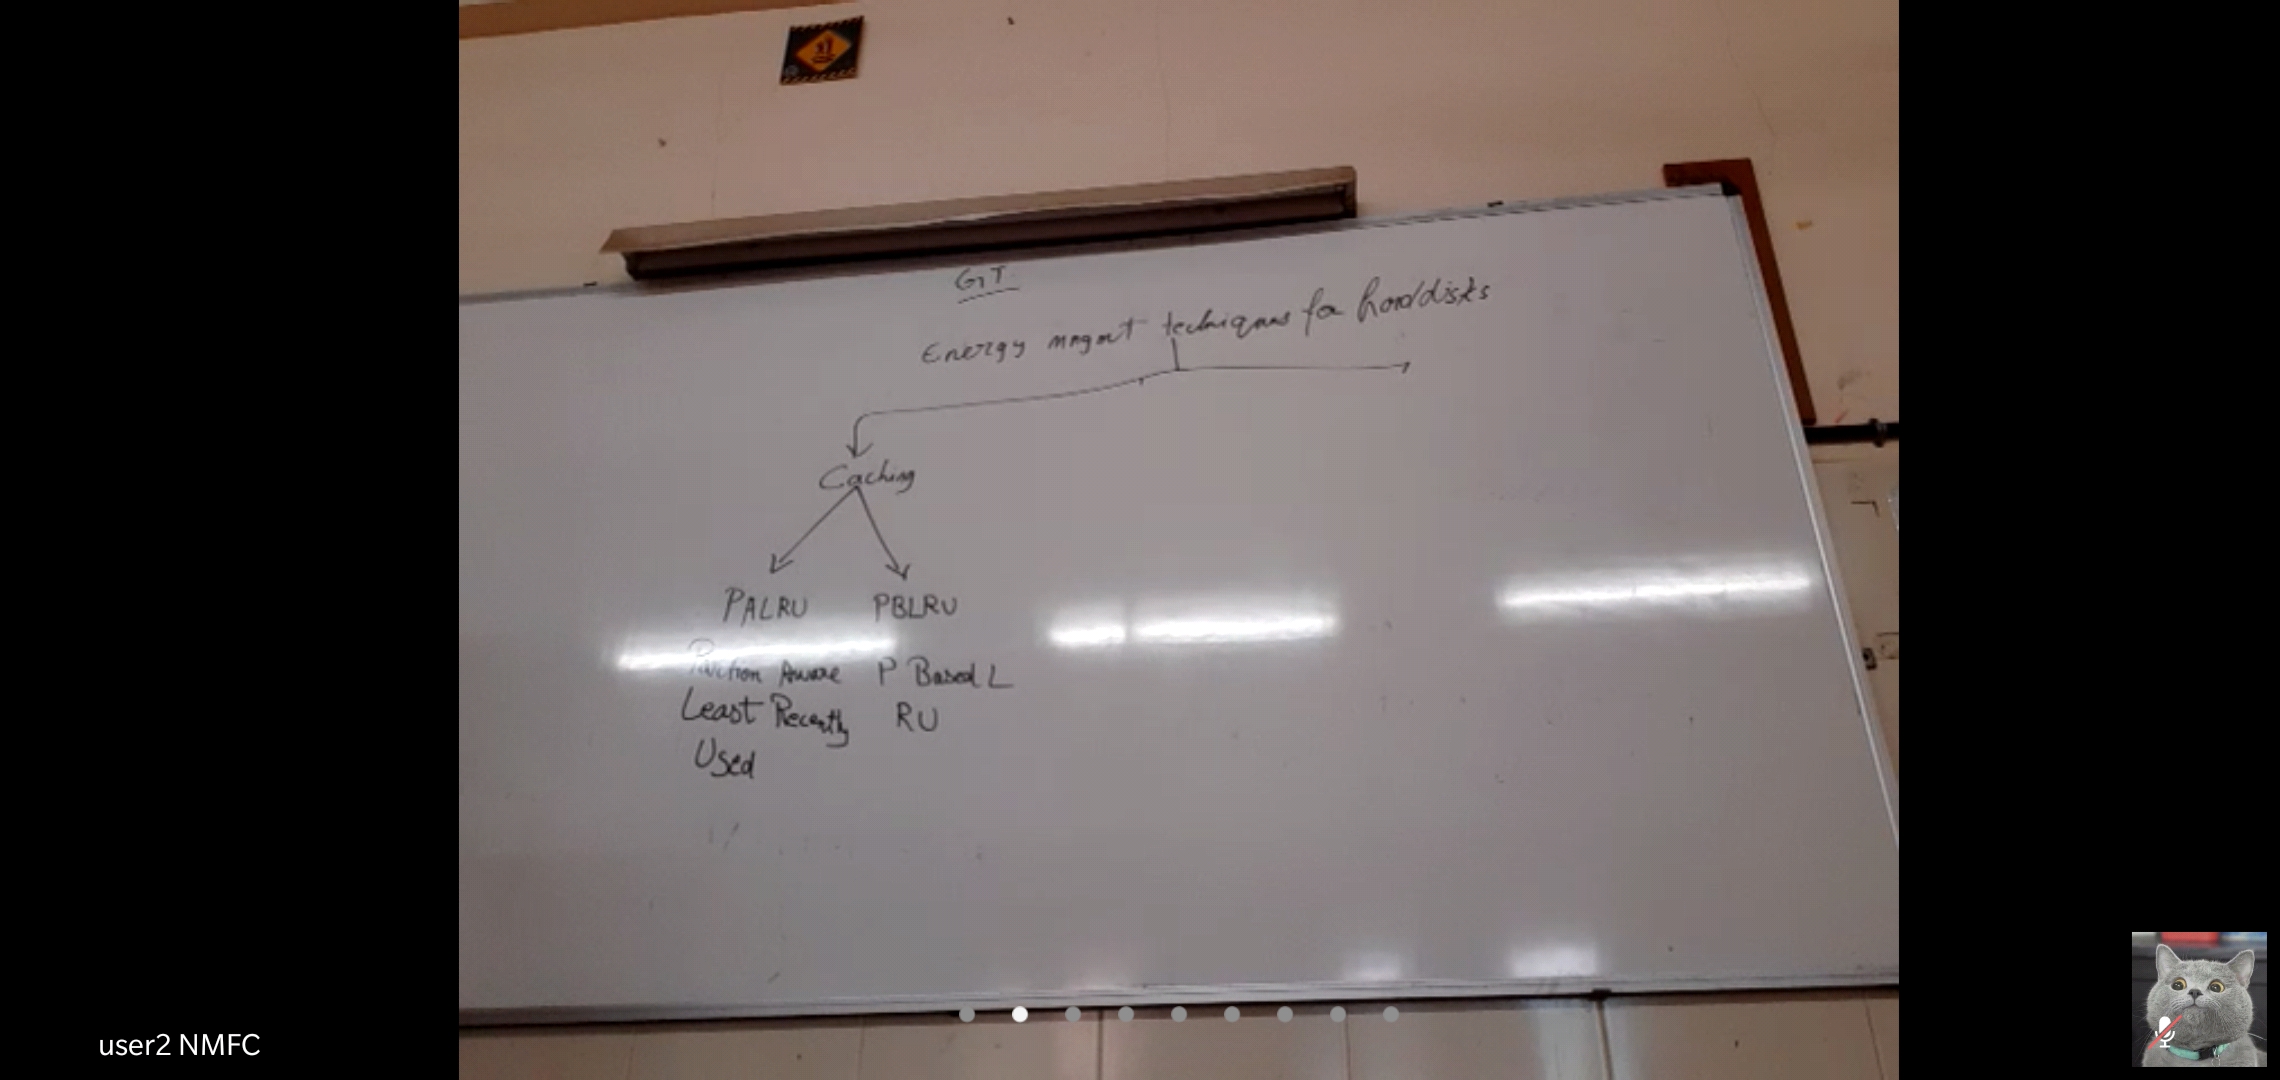 GT
Energy mngmt techniques for harddisks
Caching
PALRU PBLRU
Partion Aware P Based L
Least Recently RU
Used
user2 NMFC